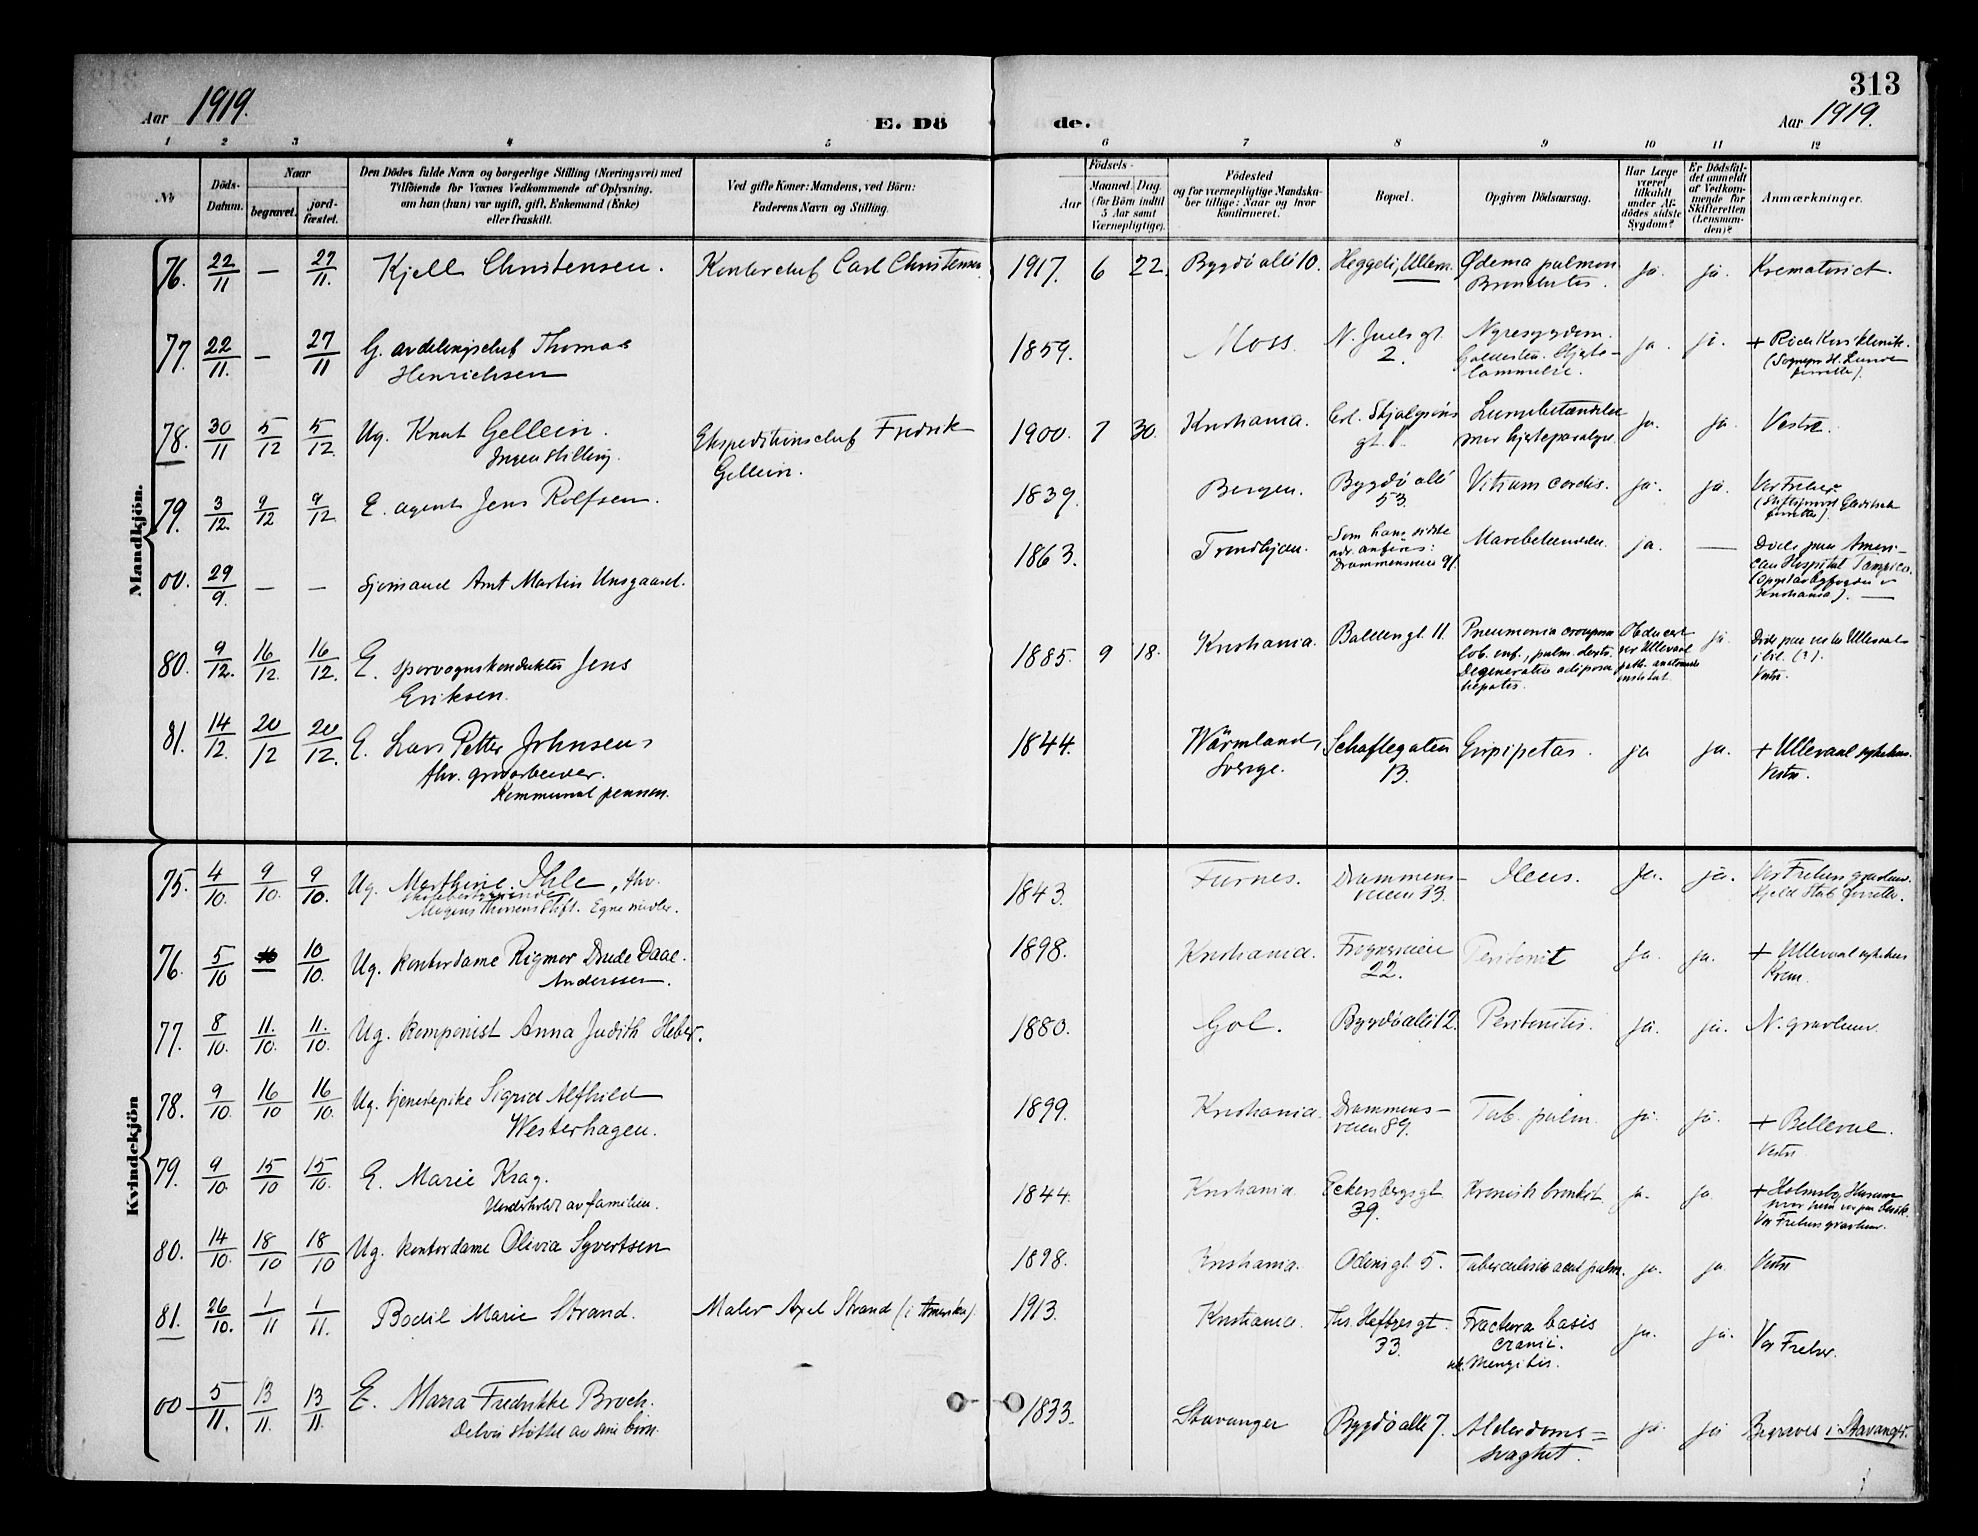 313
Aar 1919.
E. Dö de.
Aar 1919.
1 2 3 4 5 6 7 8 9 10 11 12
No
Döds-Datum.
Naar
begravet.
jord-fæstet.
Den Dödes fulde Navn og borgerlige Stilling (Næringsvei) med
Tilföiende for Voxnes Vedkommende af Oplysning,
om han (hun) var ugift, gift, Enkemand (Enke)
eller fraskilt.
Ved gifte Koner: Mandens, ved Börn:
Faderens Navn og Stilling.
Födsels-
Aar
Maaned. Dag.
(for Börn indtil
5 Aar samt
Værnepligtige).
Födested
og for værnepligtige Mandska-
ber tillige: Naar og hvor
konfirmeret.
Bopæl.
Opgiven Dödsaarsag.
Har Læge
været
tilkaldt
under Af-
dödes sidste
Sygdom?
Er Dödsfal-
det anmeldt
af Vedkom-
mende for
Skifteretten
(Lensman-
den)?
Anmærkninger.
Mandkjön.
76. 22/11 — 27/11. Kjell Christensen. Kontorchef Carl Christensen 1917. 6 22. Bygdö allé 10. Heggeli, Ullern. Ødema pulmon ja. ja. Krematoriet.
Bronchites.
77. 22/11. — 27/11 G. avdelingschef Thomas 1859. Moss. N. Juels gt. Nyresygdom. ja. ja. + Röde Kors klinik.
Henrichsen 2. Galdesten. Hjerte-
lammelse.
78. 30/11 5/12 5/12. Ug. Knut Gellein. Ekspeditionschef Fredrik 1900. 7 30. Kristiania. Erl. Skjalgsöns Lungebetændelse ja. ja. Vestre.
Ingen stilling. Gellein. gt. 1. mer hjerteparalyse.
79. 3/12. 9/12 9/12 E. agent Jens Rolfsen. 1839. Bergen. Bygdö allé Vitium cordis. ja. ja. Vor Frelser
53.
00. 29/9. — — Sjömand Arnt Martin Unsgaard. 1863. Trondhjem. Som hans sidste ja. — Döde paa Ameri-
adr. anföres: can Hospital Tampico.
Drammensveien 91.
Kristiania). —
80. 9/12. 16/12. 16/12. E. sporvognskonduktör Jens 1885. 9 18. Kristiania. Balders gt. 11. Pneumonia crouposa Obducert ja.
Eriksen. lob. inf., pulm. dextr. ved Ullevaal
Degeneratio adiposa path. anatomiske
hepatis. institut. Vestre.
81. 14/12. 20/12 20/12. E. Lars Petter Johnsen, 1844. Wärmland, Schaftegaten ja ja. + Ullevaal sykehus.
fhv. grovarbeider. Sverige. 13. Vestre.
Kommunal pension.
Kvindekjön
75. 4/10. 9/10. 9/10. Ug. Marthine Ihle, fhv. 1843. Furnes. Drammens- Ileus. Ja. ja. Vor Frelsers gravlund.
Mogens Thorsens Stift. Egne midler. veien 33. Kjeld Stub forretter.
76. 5/10 10 10/10. Ug. kontordame Rigmor Drude Daae 1898. Kristiania. Frognerveien Peritonit Ja. ja. + Ullevaal sykehus
Anderssen. 22. Krem.
77. 8/10. 11./10. 11./10. Ug. komponist Anna Judith Heber. 1880. Gol. Bygdö allé 12. Peritonitis. ja. ja. N. gravlund.
78. 9/10. 16/10 16/10. Ug. tjenestepike Sigrid Alfhild 1899. Kristiania. Drammens- Tub. pulm. ja. ja. + Bellevue.
Westerhagen. veien 89. Vestre
79. 9/10. 15/10 15/10. E. Marie Krag. 1844. Kristiania. Eckersbergs gt. Kronisk bronkit. ja. ja. + Holmsbo, Hurum
Underholdt av familien. 39. Vor Frelsers gravlund.
80. 14/10. 18/10 18/10 Ug. kontordame Olivia Syvertsen 1898. Kristiania. Odins gt. 5. Tuberculosis acut pulm. ja. ja. Vestre
81. 26/10. 1/11 1/11. Bodil Marie Strand. Maler Axel Strand (i Amerika). 1913. Kristiania. Ths. Heftyes gt. Fractura basis ja. ja. Vor Frelser.
33. cranii.
Mengitis.
00 5/11. 13/11. 13/11. E. Maria Fredrikke Broch. 1833. Stavanger Bygdö allé 7. Alderdoms= ja. ja Begraves i Stavanger.
Delvis støttet av sine børn. svaghet.